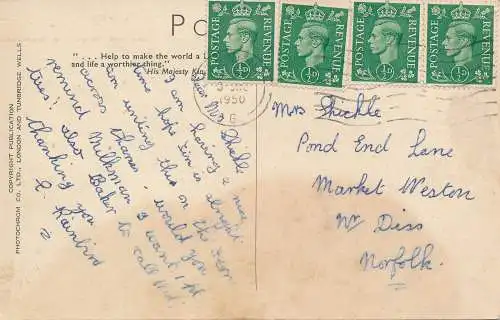 " . . . Help to make the world a
and life a worthier thing."
His Majesty Kin
POSTAGE REVENUE
½D
POSTAGE REVENUE
½D
POSTAGE REVENUE
½D
POSTAGE REVENUE
½D
1950
G
COPYRIGHT PUBLICATION
PHOTOCHROM CO. LTD., LONDON AND TUNBRIDGE WELLS
Mrs Shickle
I am having a nice
time hope Jim is alright
am writing this on the
across thanks. would you
remind Milkman I want 1 pt
tues! also Baker to call Wed.
thanking you
E. Rainbird
Mrs Shickle
Pond End Lane
Market Weston
Nr Diss
Norfolk.